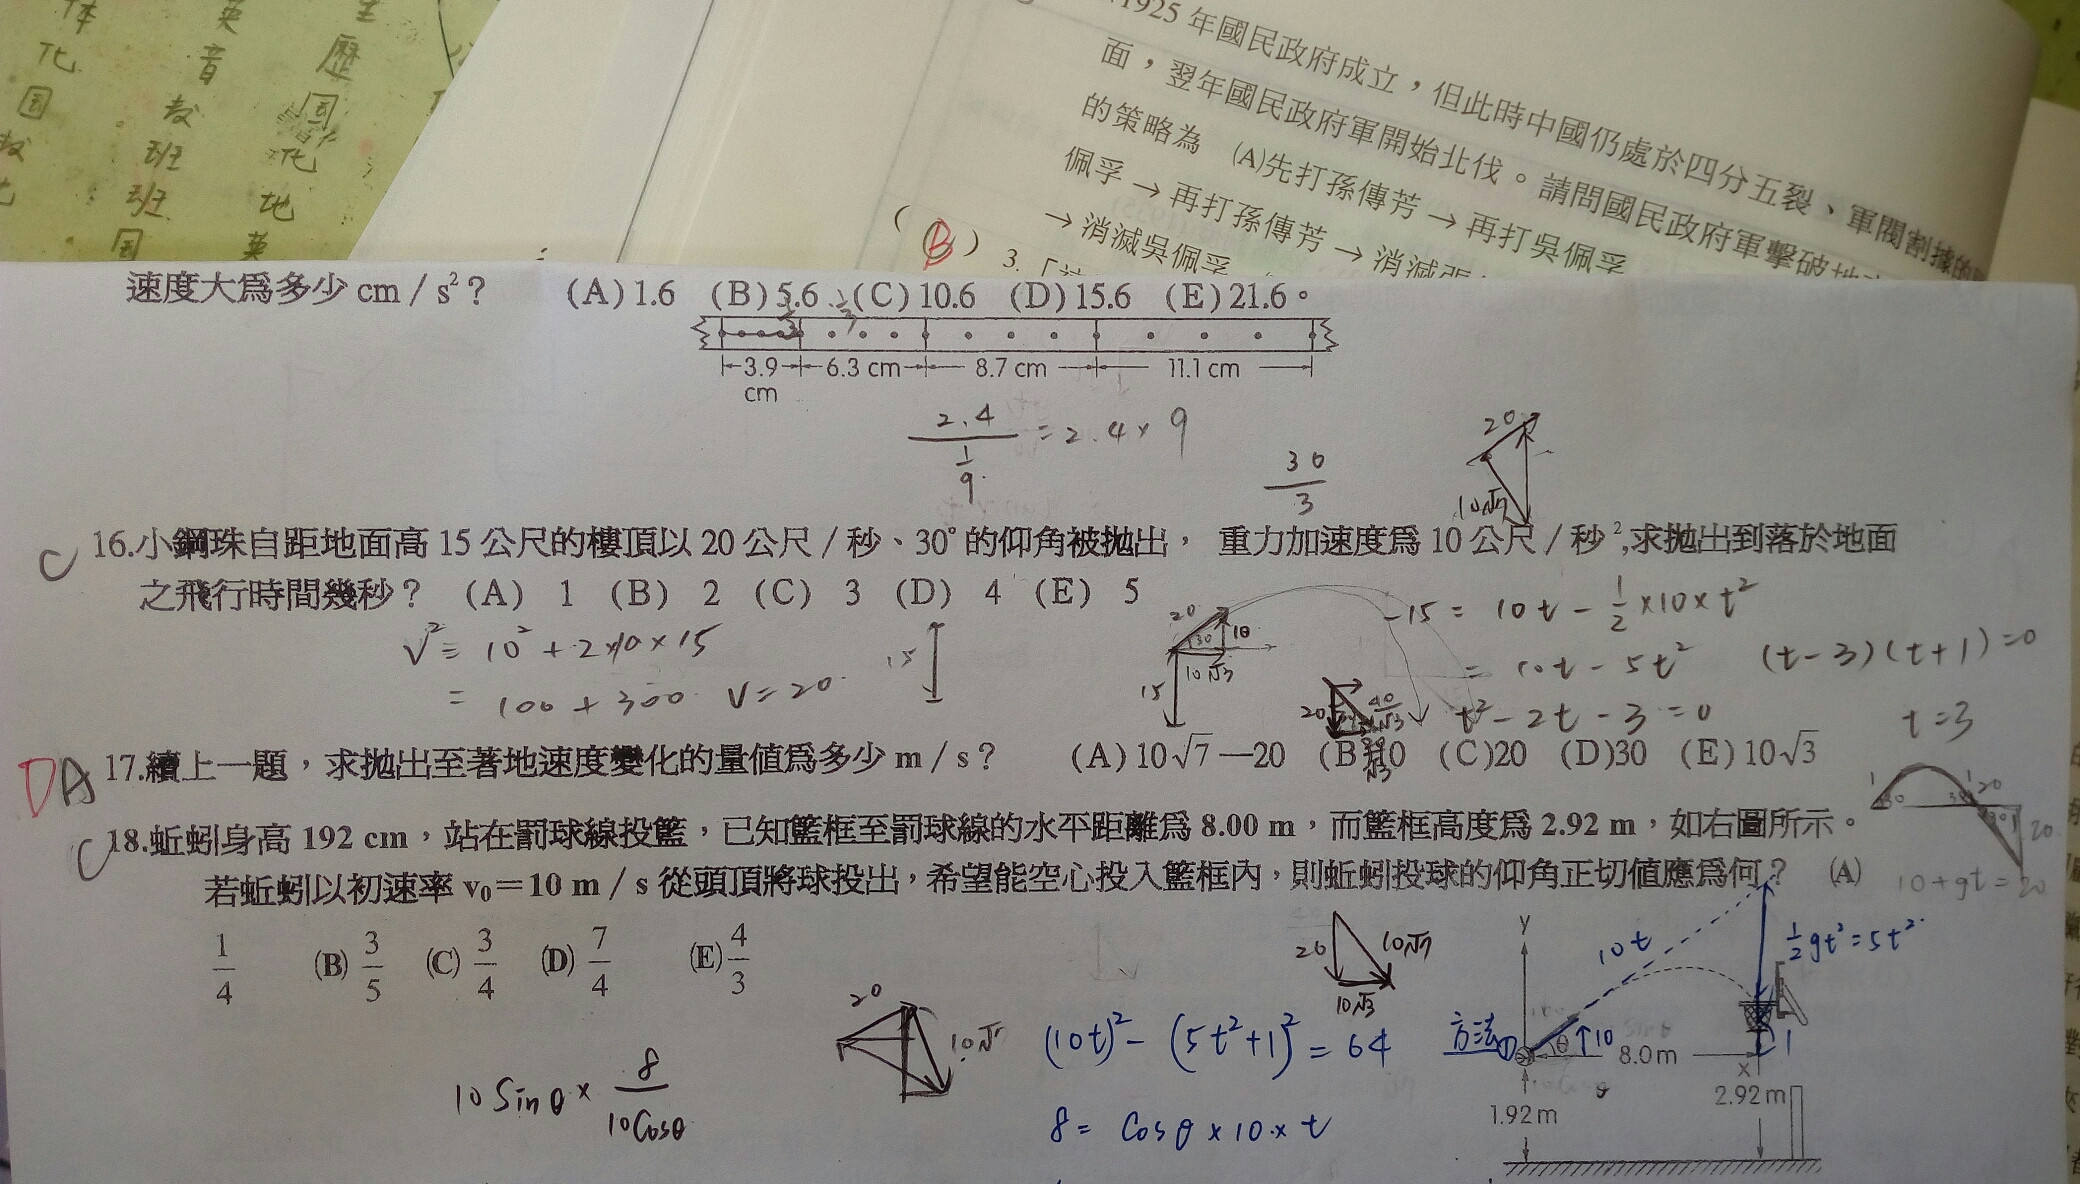 体 英 生
化 音 歷
国 教 国
班 化
班 地
国 英
1925 年國民政府成立,但此時中國仍處於四分五裂、軍閥割據的
面,翌年國民政府軍開始北伐。請問國民政府軍擊破地
的策略為 (A)先打孫傳芳→再打吳佩孚
佩孚→再打孫傳芳→消滅
→消滅吳佩孚
( B ) 3.
速度大為多少 cm/s²? (A)1.6 (B)5.6 (C)10.6 (D)15.6 (E)21.6。
3.9 cm 6.3 cm 8.7 cm 11.1 cm
2.4/(1/9) = 2.4×9
30/3
20
10√7
C 16.小鋼珠自距地面高 15 公尺的樓頂以 20 公尺/秒、30°的仰角被拋出, 重力加速度為 10 公尺/秒²,求拋出到落於地面
之飛行時間幾秒? (A) 1 (B) 2 (C) 3 (D) 4 (E) 5
V² = 10² + 2×10×15
= 100 + 300 V=20
15
20 30 10
10√3
15
-15 = 10t - ½×10×t²
= 10t - 5t² (t-3)(t+1)=0
t²-2t-3=0 t=3
20
DA 17.續上一題,求拋出至著地速度變化的量值為多少 m/s? (A)10√7—20 (B)10 (C)20 (D)30 (E)10√3
20
20
10+gt=20
C 18.蚯蚓身高 192 cm,站在罰球線投籃,已知籃框至罰球線的水平距離為 8.00 m,而籃框高度為 2.92 m,如右圖所示。
若蚯蚓以初速率 v₀=10 m/s 從頭頂將球投出,希望能空心投入籃框內,則蚯蚓投球的仰角正切值應為何? (A)
1/4 (B) 3/5 (C) 3/4 (D) 7/4 (E) 4/3
20 10√7
10√3
20
10√
10Sinθ × 8/10Cosθ
(10t)² - (5t²+1)² = 64
8 = Cosθ×10×t
方法①
y
10t
½gt²=5t²
θ ↑10 8.0 m 1
x
1.92 m 2.92 m